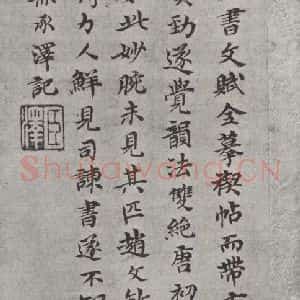 書文賦全摹禊帖而帶
勁遂覺韻法雙絕唐初
此妙腕未見其匹趙文
力人鮮見司諫書遂不
承澤記
ShufaWang.CN